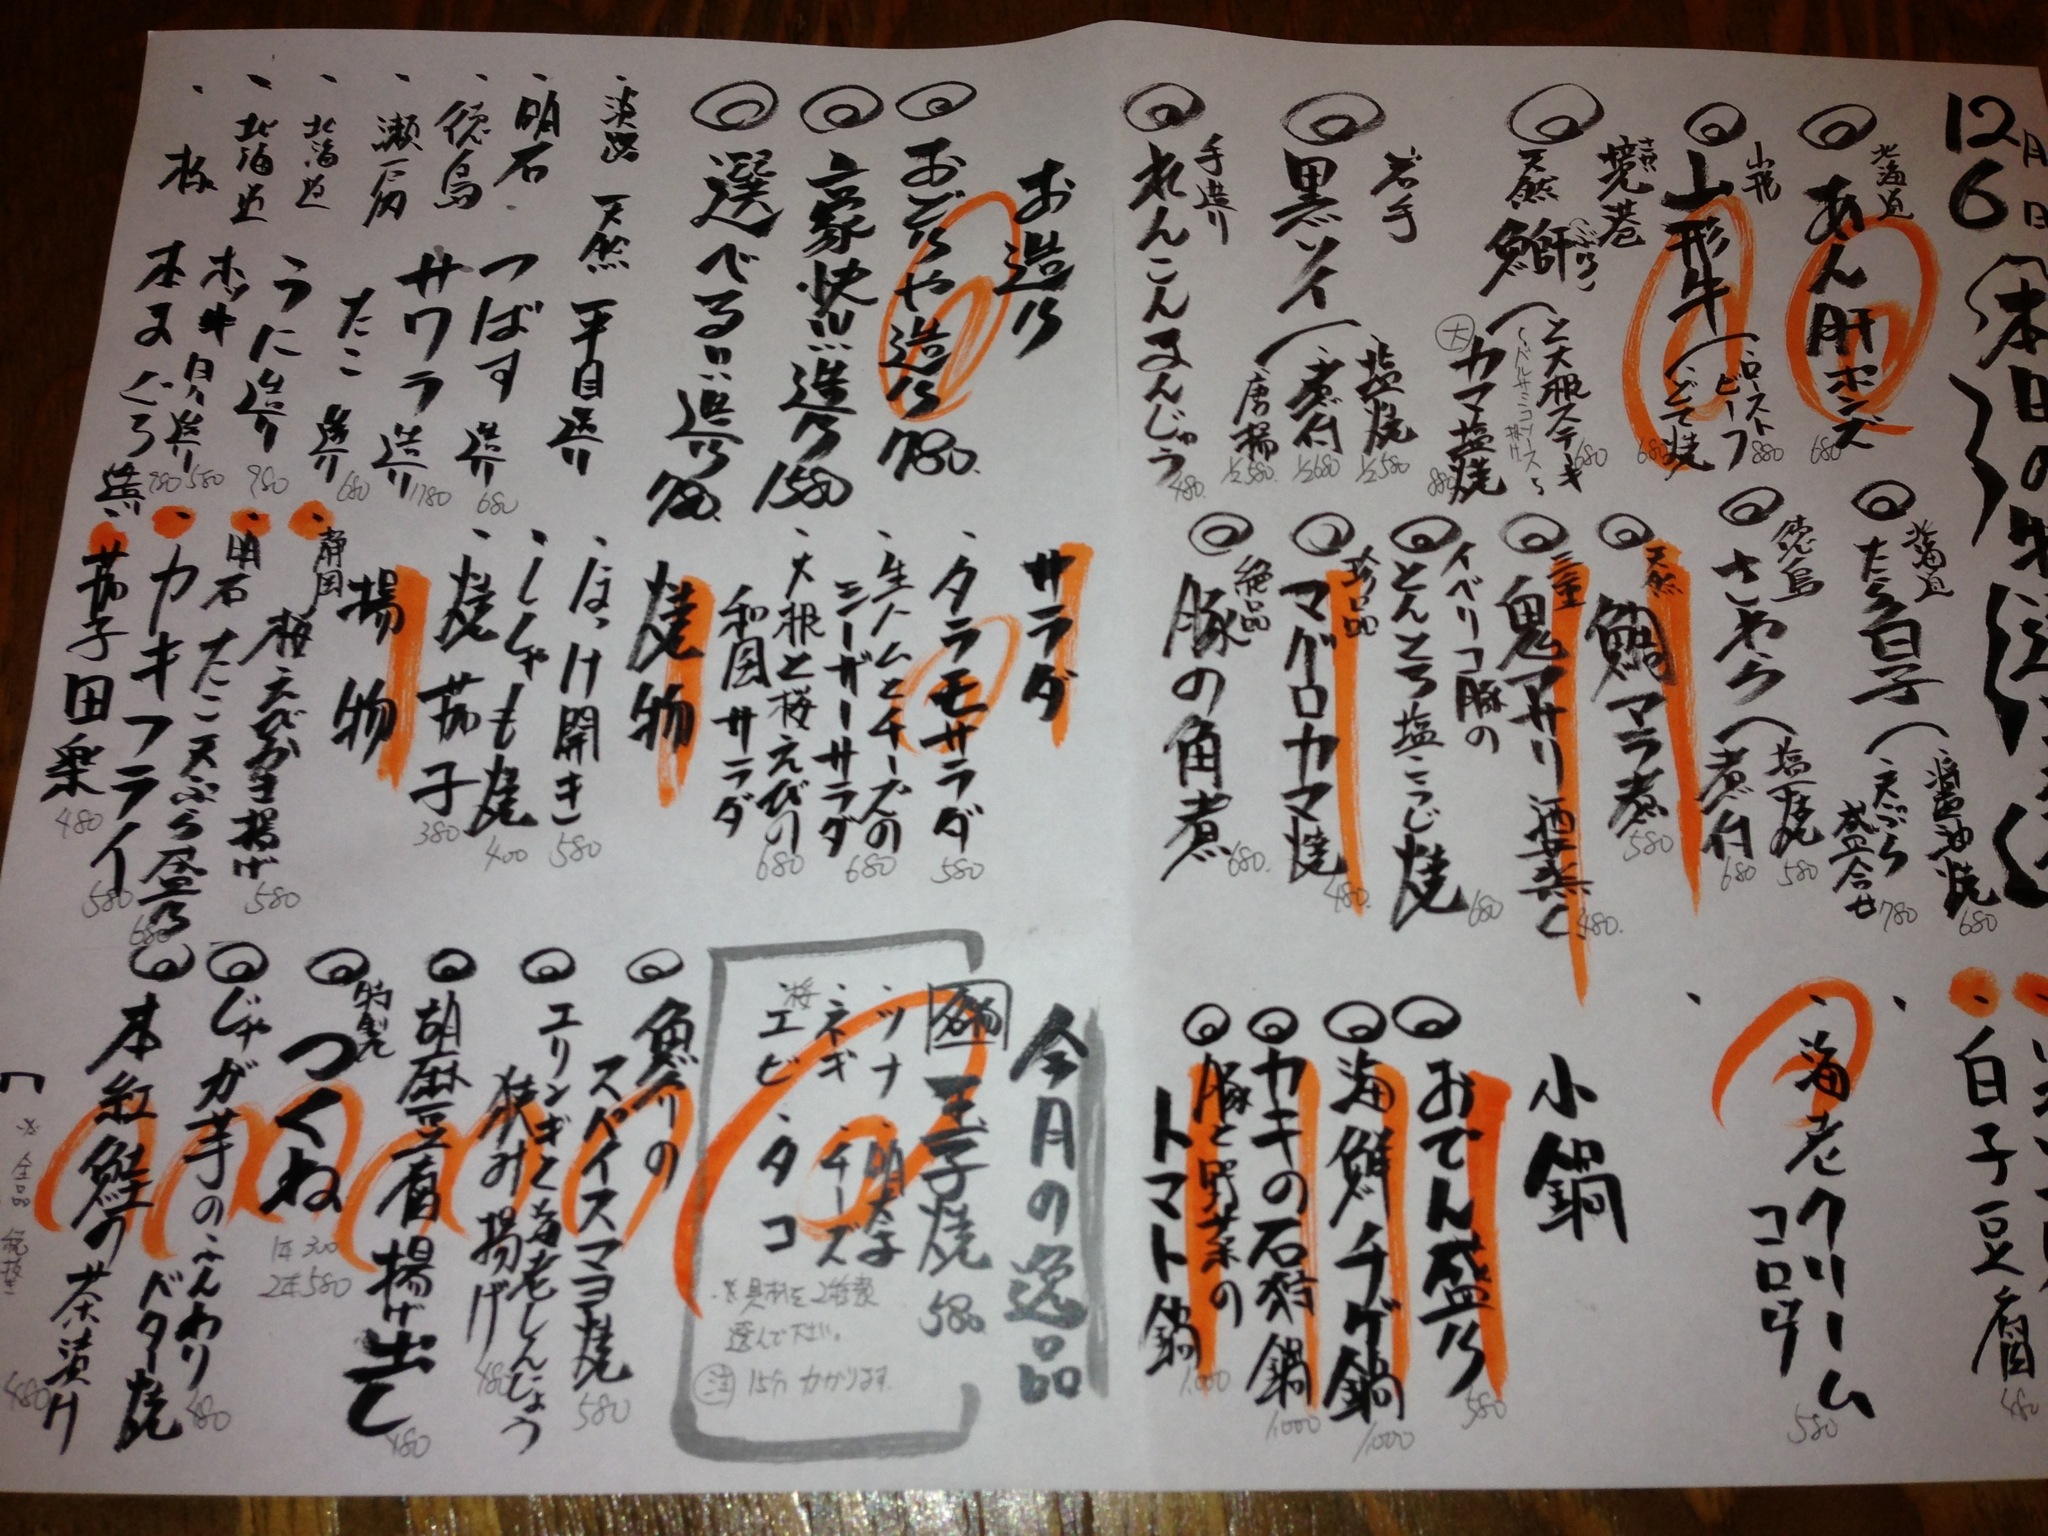 12月6日
北海道
あん肝ポンズ 680
山形
山形牛
ローストビーフ 880
どて焼 680
境港
天然 鰤
と大根ステーキ 680
大 カマ塩焼 880
岩手
黒ソイ
塩焼 1/2 580
煮付 1/2 680
唐揚 1/2 580
手造り
れんこんまんじゅう 480
北海道
たら白子
醤油焼 680
天ぷら盛合せ 780
徳島
さわら
塩焼 580
煮付 680
天然
鯛マラ煮 580
三重
鬼アサリ酒蒸し 480
イベリコ豚の
とんとろ塩こうじ焼 680
珍品
マグロカマ焼 480
絶品
豚の角煮 680
白子豆腐 480
海老クリーム
コロッケ 580
小鍋
おでん盛り 580
海鮮チゲ鍋 1,000
カキの石狩鍋 1,000
豚と野菜の
トマト鍋 1,000
お造り
おどりや造り 780
豪快!!造り 1580
選べる!!造り 780
淡路 天然 平目 造り
明石 つばす 造り 680
徳島 サワラ 造り 780
瀬戸内 たこ 造り 680
北海道 うに 造り 980
北海道 ホッキ貝 造り 580
本まぐろ 造り 980
サラダ
タラモサラダ 580
生ハムとチーズの
シーザーサラダ 680
大根と桜えびの
和風サラダ 680
焼物
ほっけ開き 580
ししゃも焼 400
焼茄子 380
揚物
静岡 桜えびかき揚げ 580
明石 たこ天ぷら 680
カキフライ 580
茄子田楽 480
今月の逸品
玉子焼 580
ツナ・明太子
ネギ・チーズ
桜エビ・タコ
※具材を2種類
選んで下さい。
注 15分かかります。
魚のスパイスマヨ焼 580
エリンギと海老しんじょう
挟み揚げ 480
胡麻豆腐揚げ出し 480
特製
つくね
1本300
2本580
じゃが芋のふんわり
バター焼 480
本紅鮭の茶漬け 480
※全品税抜き